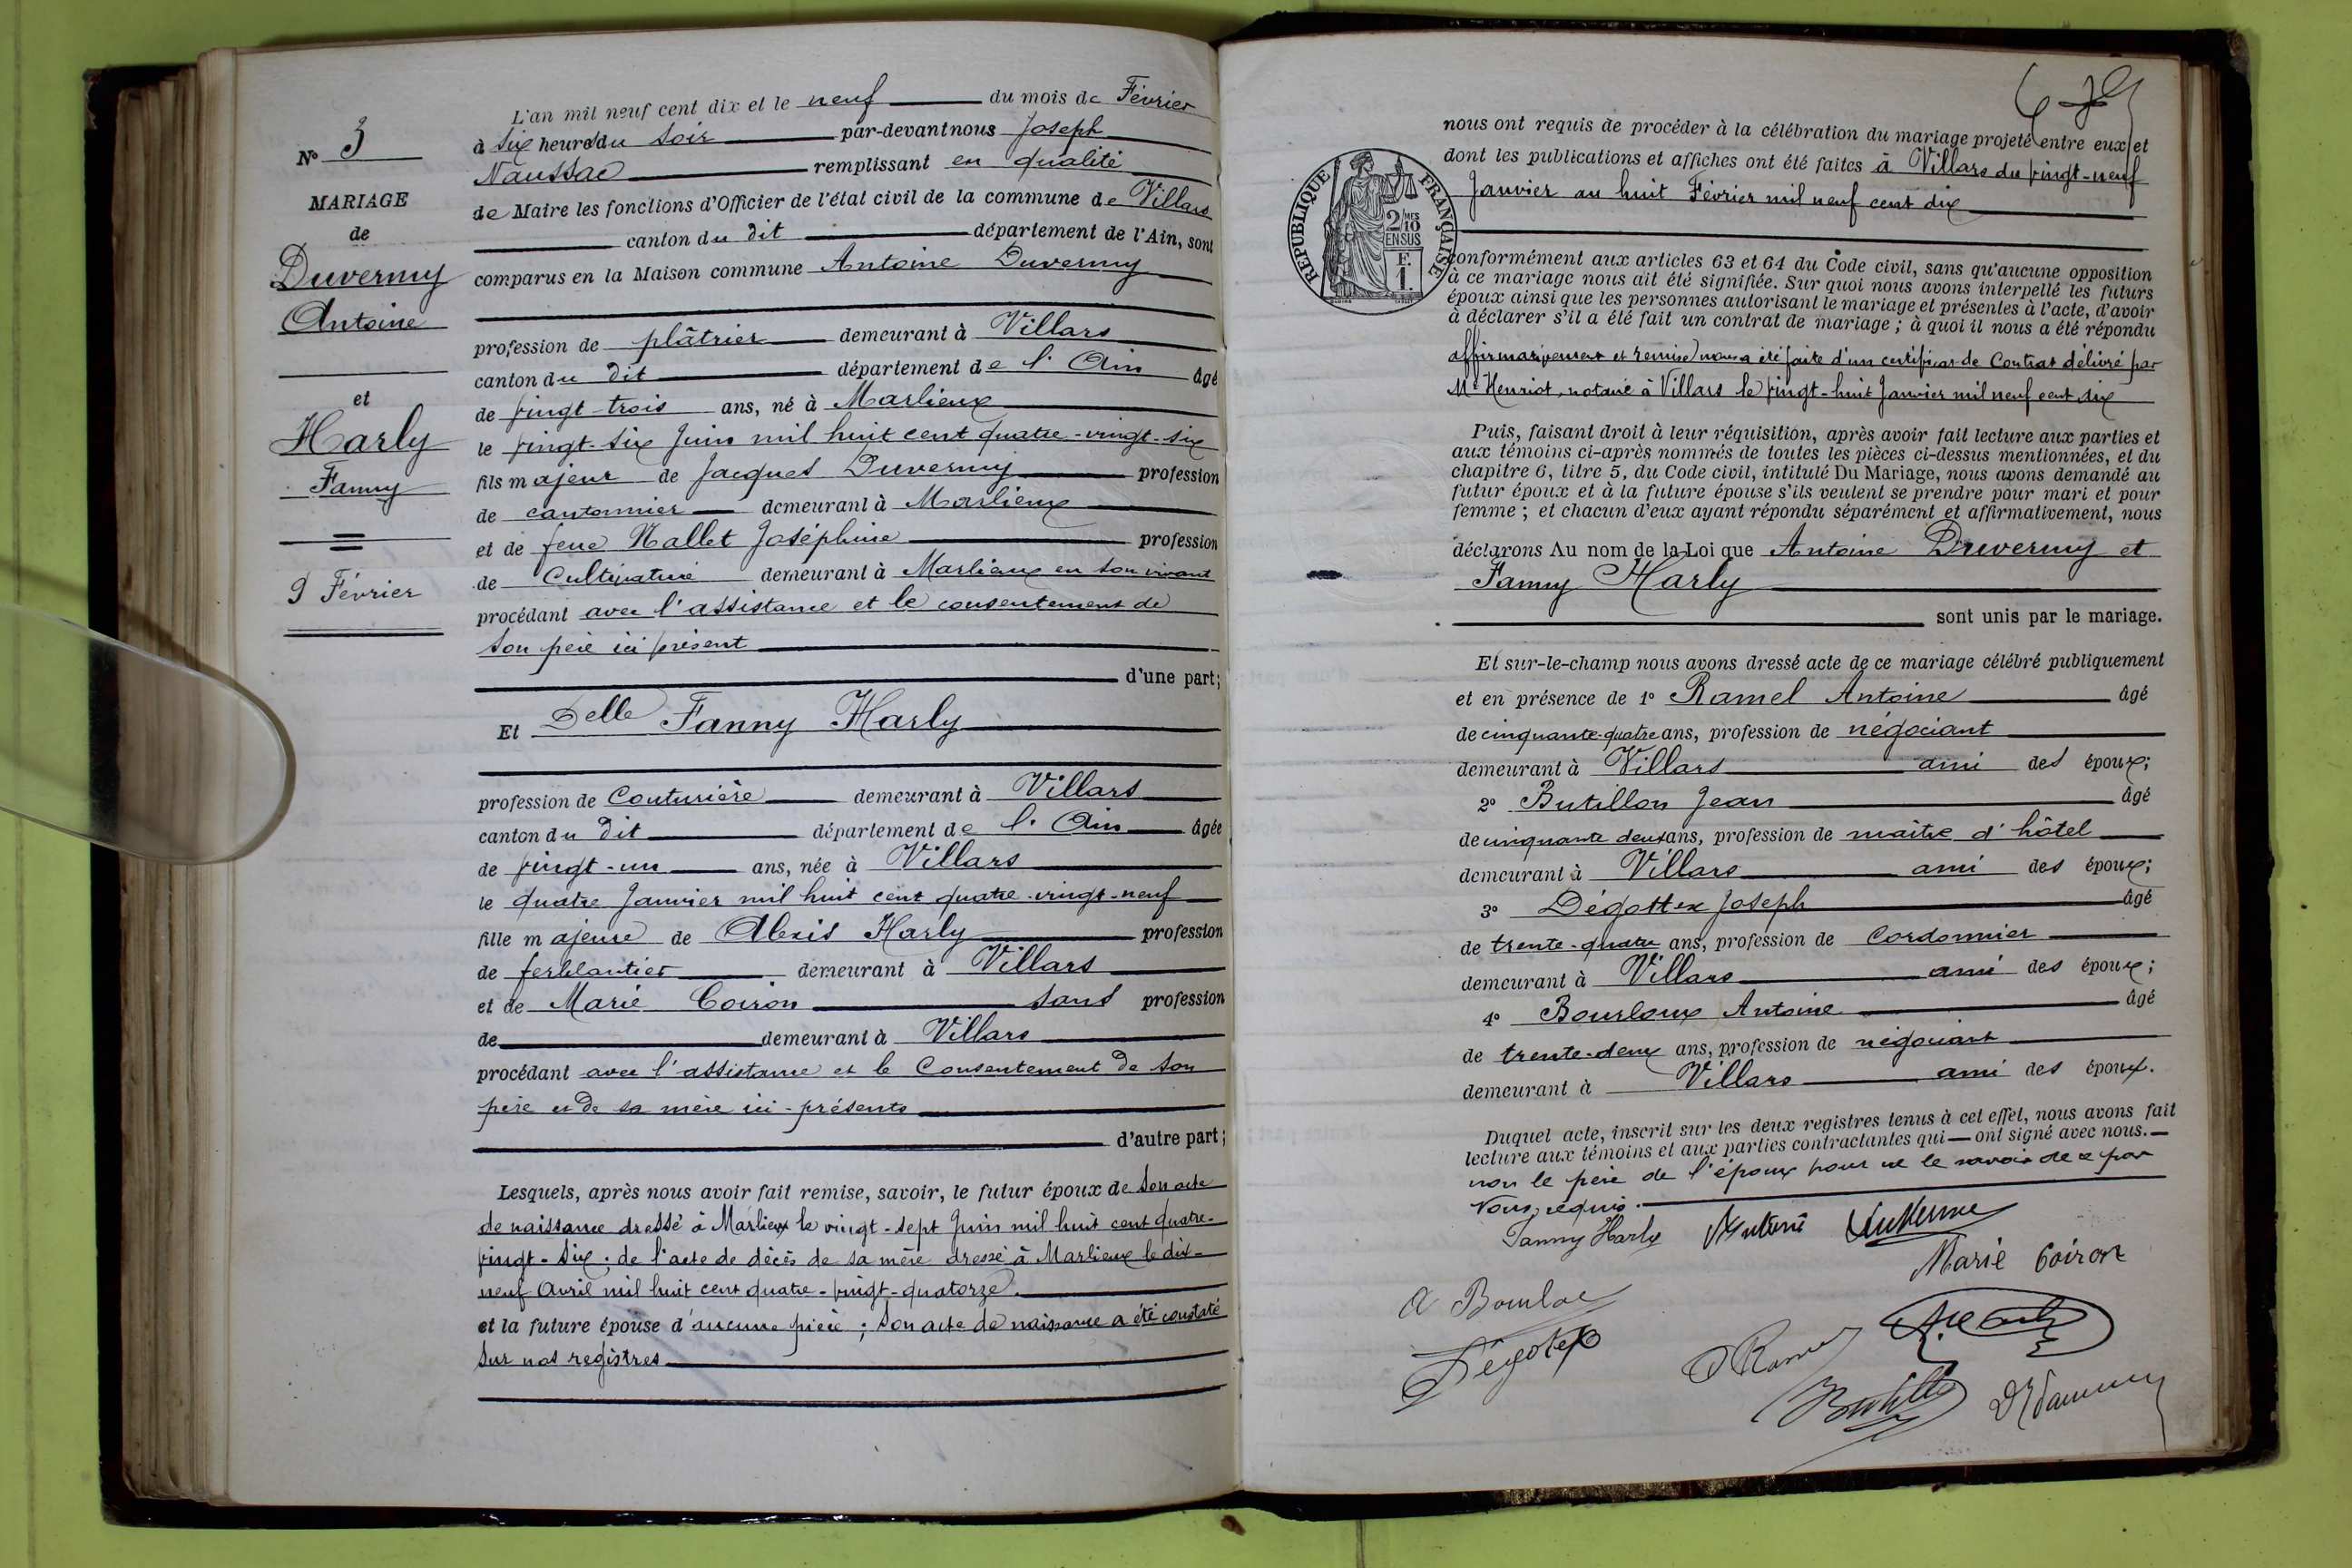 N° 3
MARIAGE
de
Duvernay
Antoine
et
Harly
Fanny
9 Février
L'an mil neuf cent dix et le neuf du mois de Février
à six heures du soir par-devant nous Joseph
Naussac remplissant en qualité
de Maire les fonctions d'Officier de l'état civil de la commune de Villars
canton du dit département de l'Ain, sont
comparus en la Maison commune Antoine Duvernay
profession de plâtrier demeurant à Villars
canton du dit département de l'Ain âgé
de vingt-trois ans, né à Marlieux
le vingt-six Juin mil huit cent quatre-vingt-six
fils majeur de Jacques Duvernay profession
de cantonnier demeurant à Marlieux
et de feue Nallet Joséphine profession
de Cultivatrice demeurant à Marlieux en son vivant
procédant avec l'assistance et le consentement de
son père ici présent
d'une part;
Et Delle Fanny Harly
profession de Couturière demeurant à Villars
canton du dit département de l'Ain âgée
de vingt-un ans, née à Villars
le quatre Janvier mil huit cent quatre-vingt-neuf
fille majeure de Alexis Harly profession
de ferblantier demeurant à Villars
et de Marie Coiron sans profession
de demeurant à Villars
procédant avec l'assistance et le Consentement de son
père et de sa mère ici-présents
d'autre part;
Lesquels, après nous avoir fait remise, savoir, le futur époux de son acte
de naissance dressé à Marlieux le vingt-sept Juin mil huit cent quatre-
vingt-six; de l'acte de décès de sa mère dressé à Marlieux le dix-
neuf Avril mil huit cent quatre-vingt-quatorze.
et la future épouse d'aucune pièce; son acte de naissance a été constaté
sur nos registres
nous ont requis de procéder à la célébration du mariage projeté entre eux et
dont les publications et affiches ont été faites à Villars du vingt-neuf
Janvier au huit Février mil neuf cent dix
RÉPUBLIQUE FRANÇAISE
2/10MES
EN SUS
F.
1.
conformément aux articles 63 et 64 du Code civil, sans qu'aucune opposition
à ce mariage nous ait été signifiée. Sur quoi nous avons interpellé les futurs
époux ainsi que les personnes autorisant le mariage et présentes à l'acte, d'avoir
à déclarer s'il a été fait un contrat de mariage; à quoi il nous a été répondu
affirmativement et remise nous a été faite d'un certificat de Contrat délivré par
Me Henriot, notaire à Villars le vingt-huit Janvier mil neuf cent dix
Puis, faisant droit à leur réquisition, après avoir fait lecture aux parties et
aux témoins ci-après nommés de toutes les pièces ci-dessus mentionnées, et du
chapitre 6, titre 5, du Code civil, intitulé Du Mariage, nous avons demandé au
futur époux et à la future épouse s'ils veulent se prendre pour mari et pour
femme; et chacun d'eux ayant répondu séparément et affirmativement, nous
déclarons Au nom de la Loi que Antoine Duvernay et
Fanny Harly
sont unis par le mariage.
Et sur-le-champ nous avons dressé acte de ce mariage célébré publiquement
et en présence de 1° Ramel Antoine âgé
de cinquante-quatre ans, profession de négociant
demeurant à Villars ami des époux;
2° Butillon Jean âgé
de cinquante deux ans, profession de maître d'hôtel
demeurant à Villars ami des époux;
3° Dégottex Joseph âgé
de trente-quatre ans, profession de Cordonnier
demeurant à Villars ami des époux;
4° Bourloux Antoine âgé
de trente-deux ans, profession de négociant
demeurant à Villars ami des époux.
Duquel acte, inscrit sur les deux registres tenus à cet effet, nous avons fait
lecture aux témoins et aux parties contractantes qui ont signé avec nous.
non le père de l'époux pour ne le savoir de ce par
Nous, requis.
Fanny Harly Antoine Duvernay
Marie Coiron
A Bourloux
Dégottex
A Ramel
Butillon